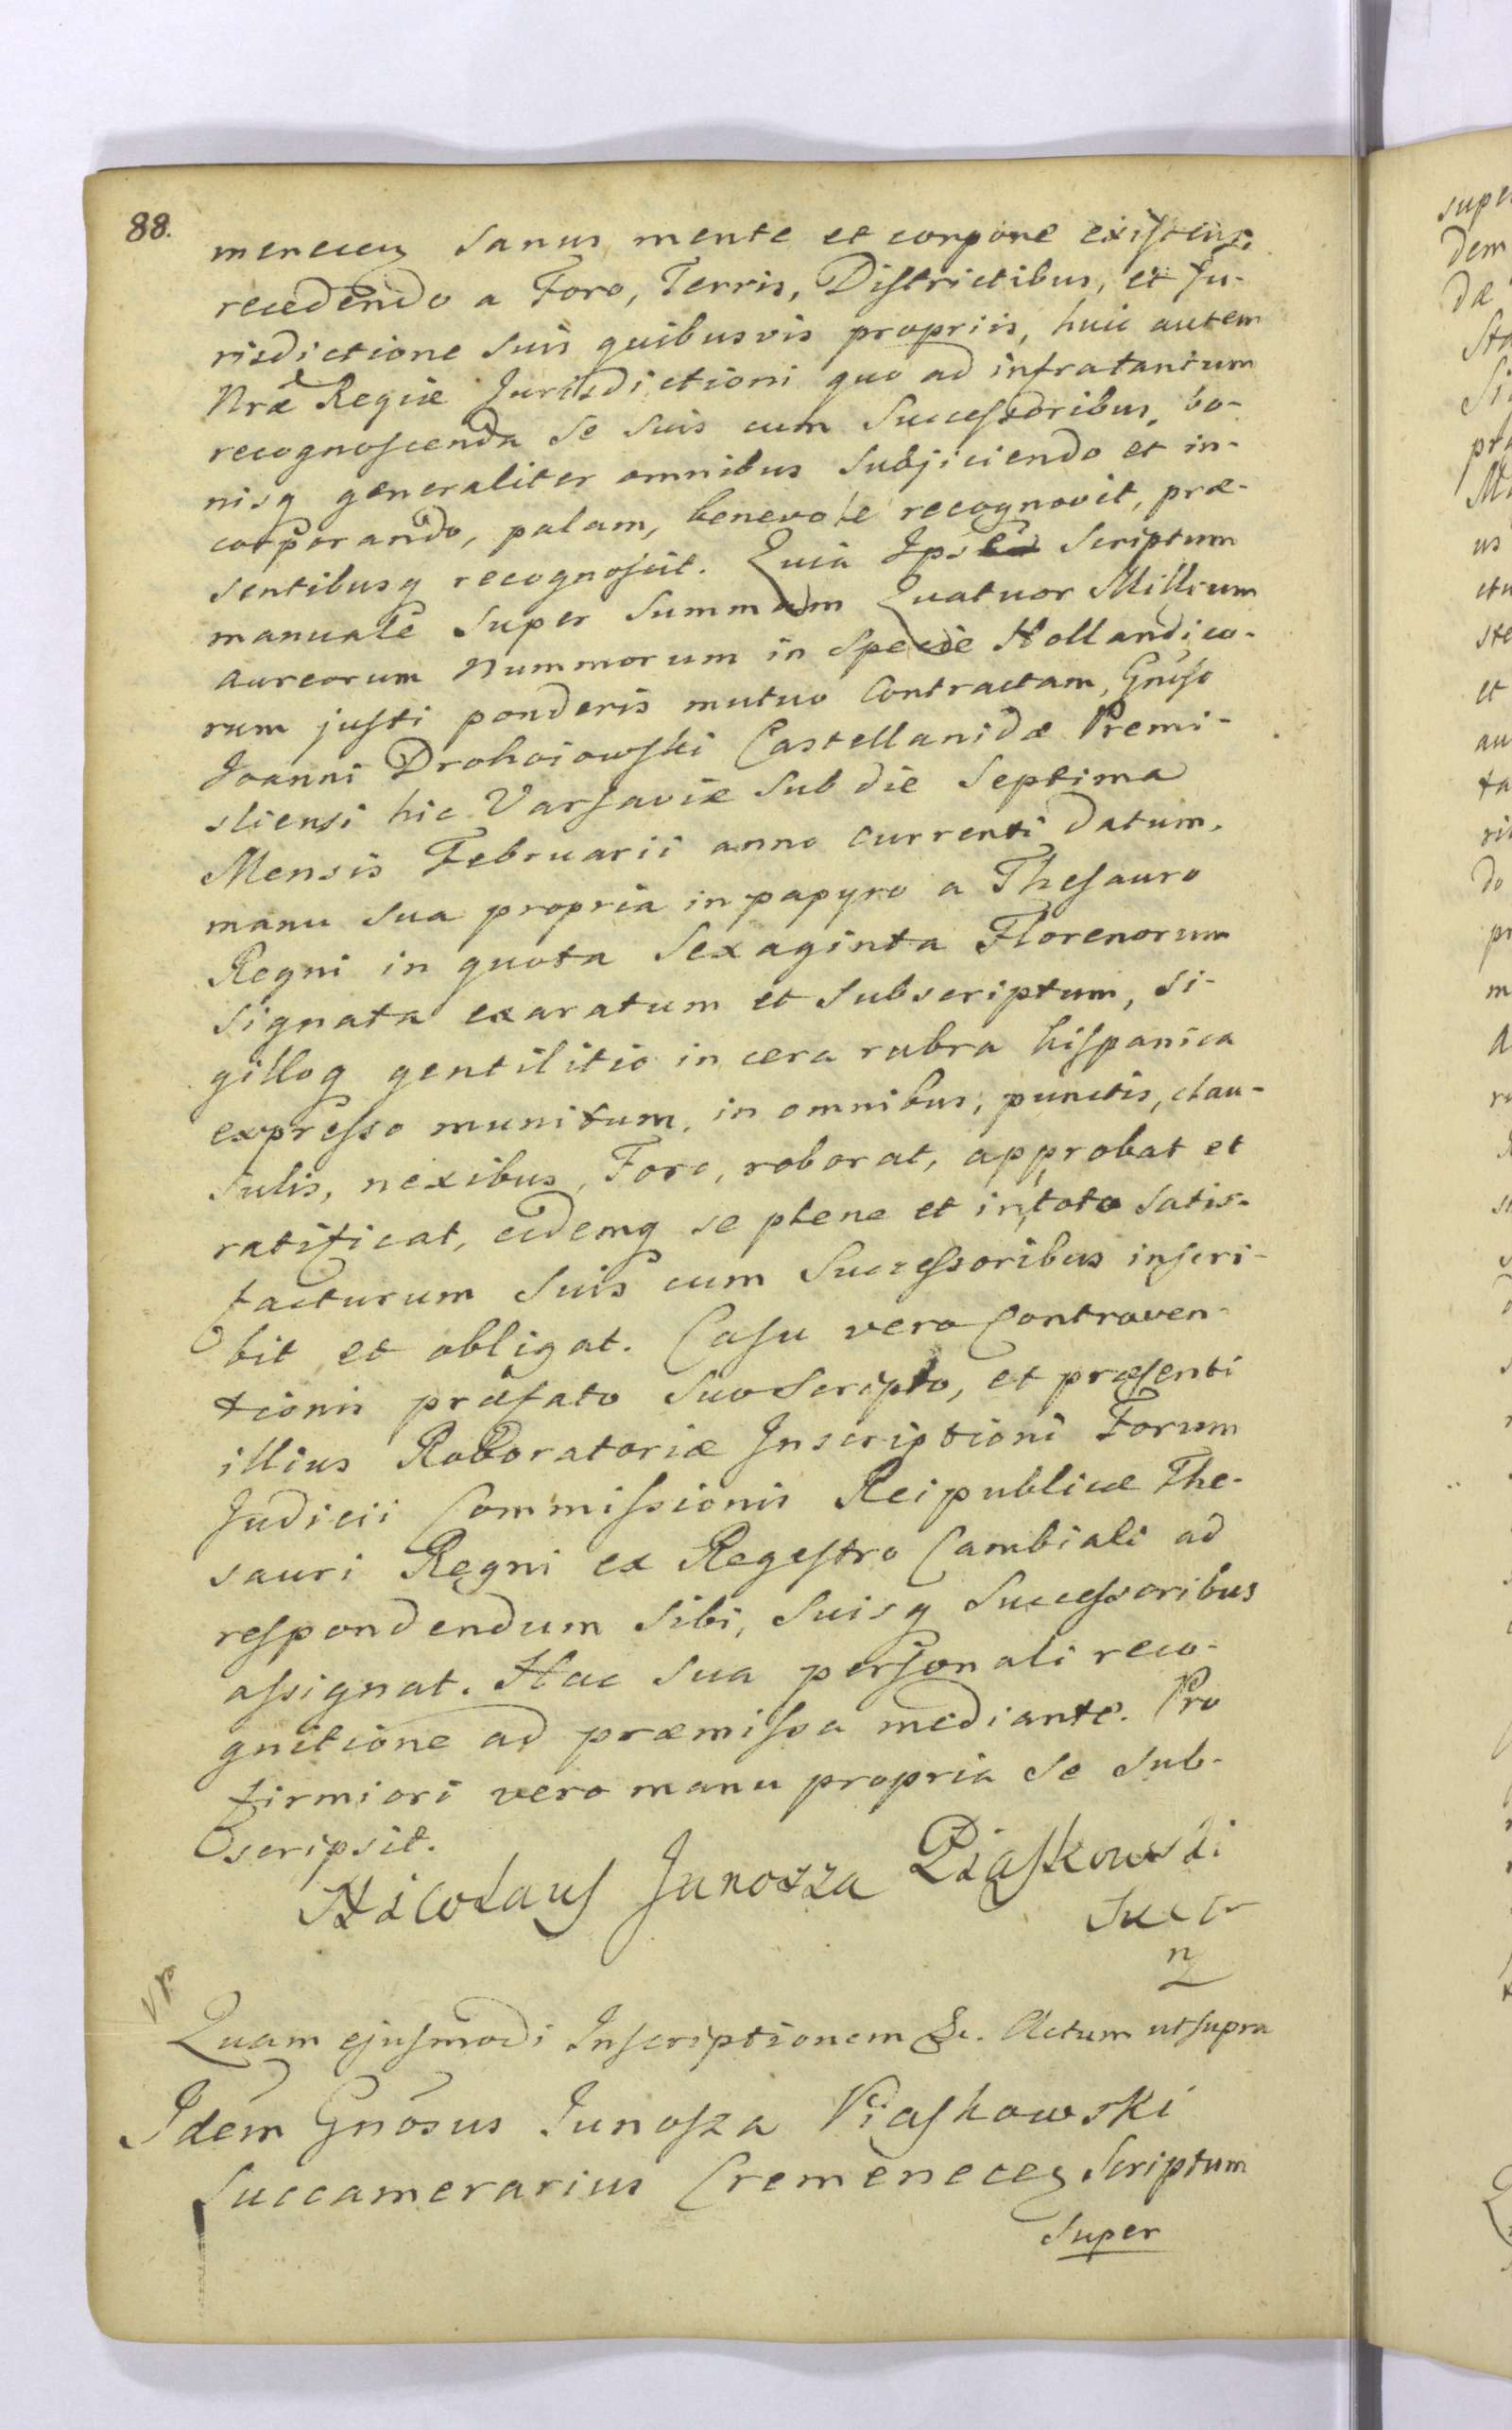 88.
menecen sanus mente et corpore existens,
recedendo a Foro, Terris, Districtibus, et Ju-
risdictione suis quibusvis propriis, huic autem
Nræ Regiæ Jurisdictioni quo ad infratantum
recognoscenda se suis cum Successoribus, bo-
nisq generaliter omnibus subjiciendo et in-
corporando, palam, benevole recognovit, præ-
sentibusq recognoscit. Quia Ipse Scriptum
manuale super summam Quatuor Millium
aureorum nummorum in specie Hollandico-
rum justi ponderis mutuo contractam, Gnoso
Joanni Drohoiowski Castellanidæ Premi-
sliensi hic Varsaviæ sub die Septima
Mensis Februarii anno currenti datum,
manu sua propria in papyro a Thesauro
Regni in quota sexaginta Florenorum
signata exaratum et subscriptum, si-
gilloq gentilitio in cera rubra hispanica
expresso munitum, in omnibus, punctis, clau-
sulis, nexibus, Foro, roborat, approbat et
ratificat, eidemq se plene et in toto satis-
facturum suis cum Successoribus inscri-
bit et obligat. Casu vero Contraven-
tionis præfato suo Scripto, et præsenti
illius Roboratoriæ Inscriptioni Forum
Judicii Commissionis Reipublicæ The-
sauri Regni ex Regestro Cambiali ad
respondendum sibi, suisq Successoribus
assignat. Hac sua personali reco-
gnitione ad præmissa mediante. Pro
firmiori vero manu propria se sub-
scripsit.
Nicolaus Junosza Piaskowski
Quam ejusmodi Inscriptionem &c. Actum ut supra
Idem Gnosus Junosza Piaskowski
Succamerarius Cremenecen Scriptum
super